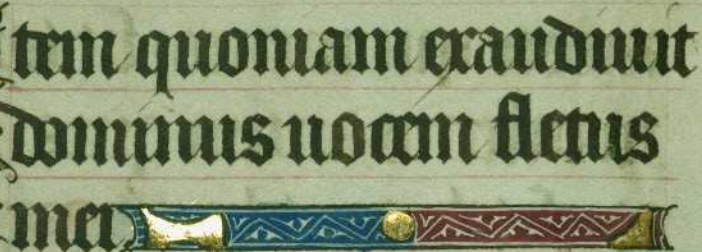 tem quoniam exaudiuit
dominus uocem fletus
mei